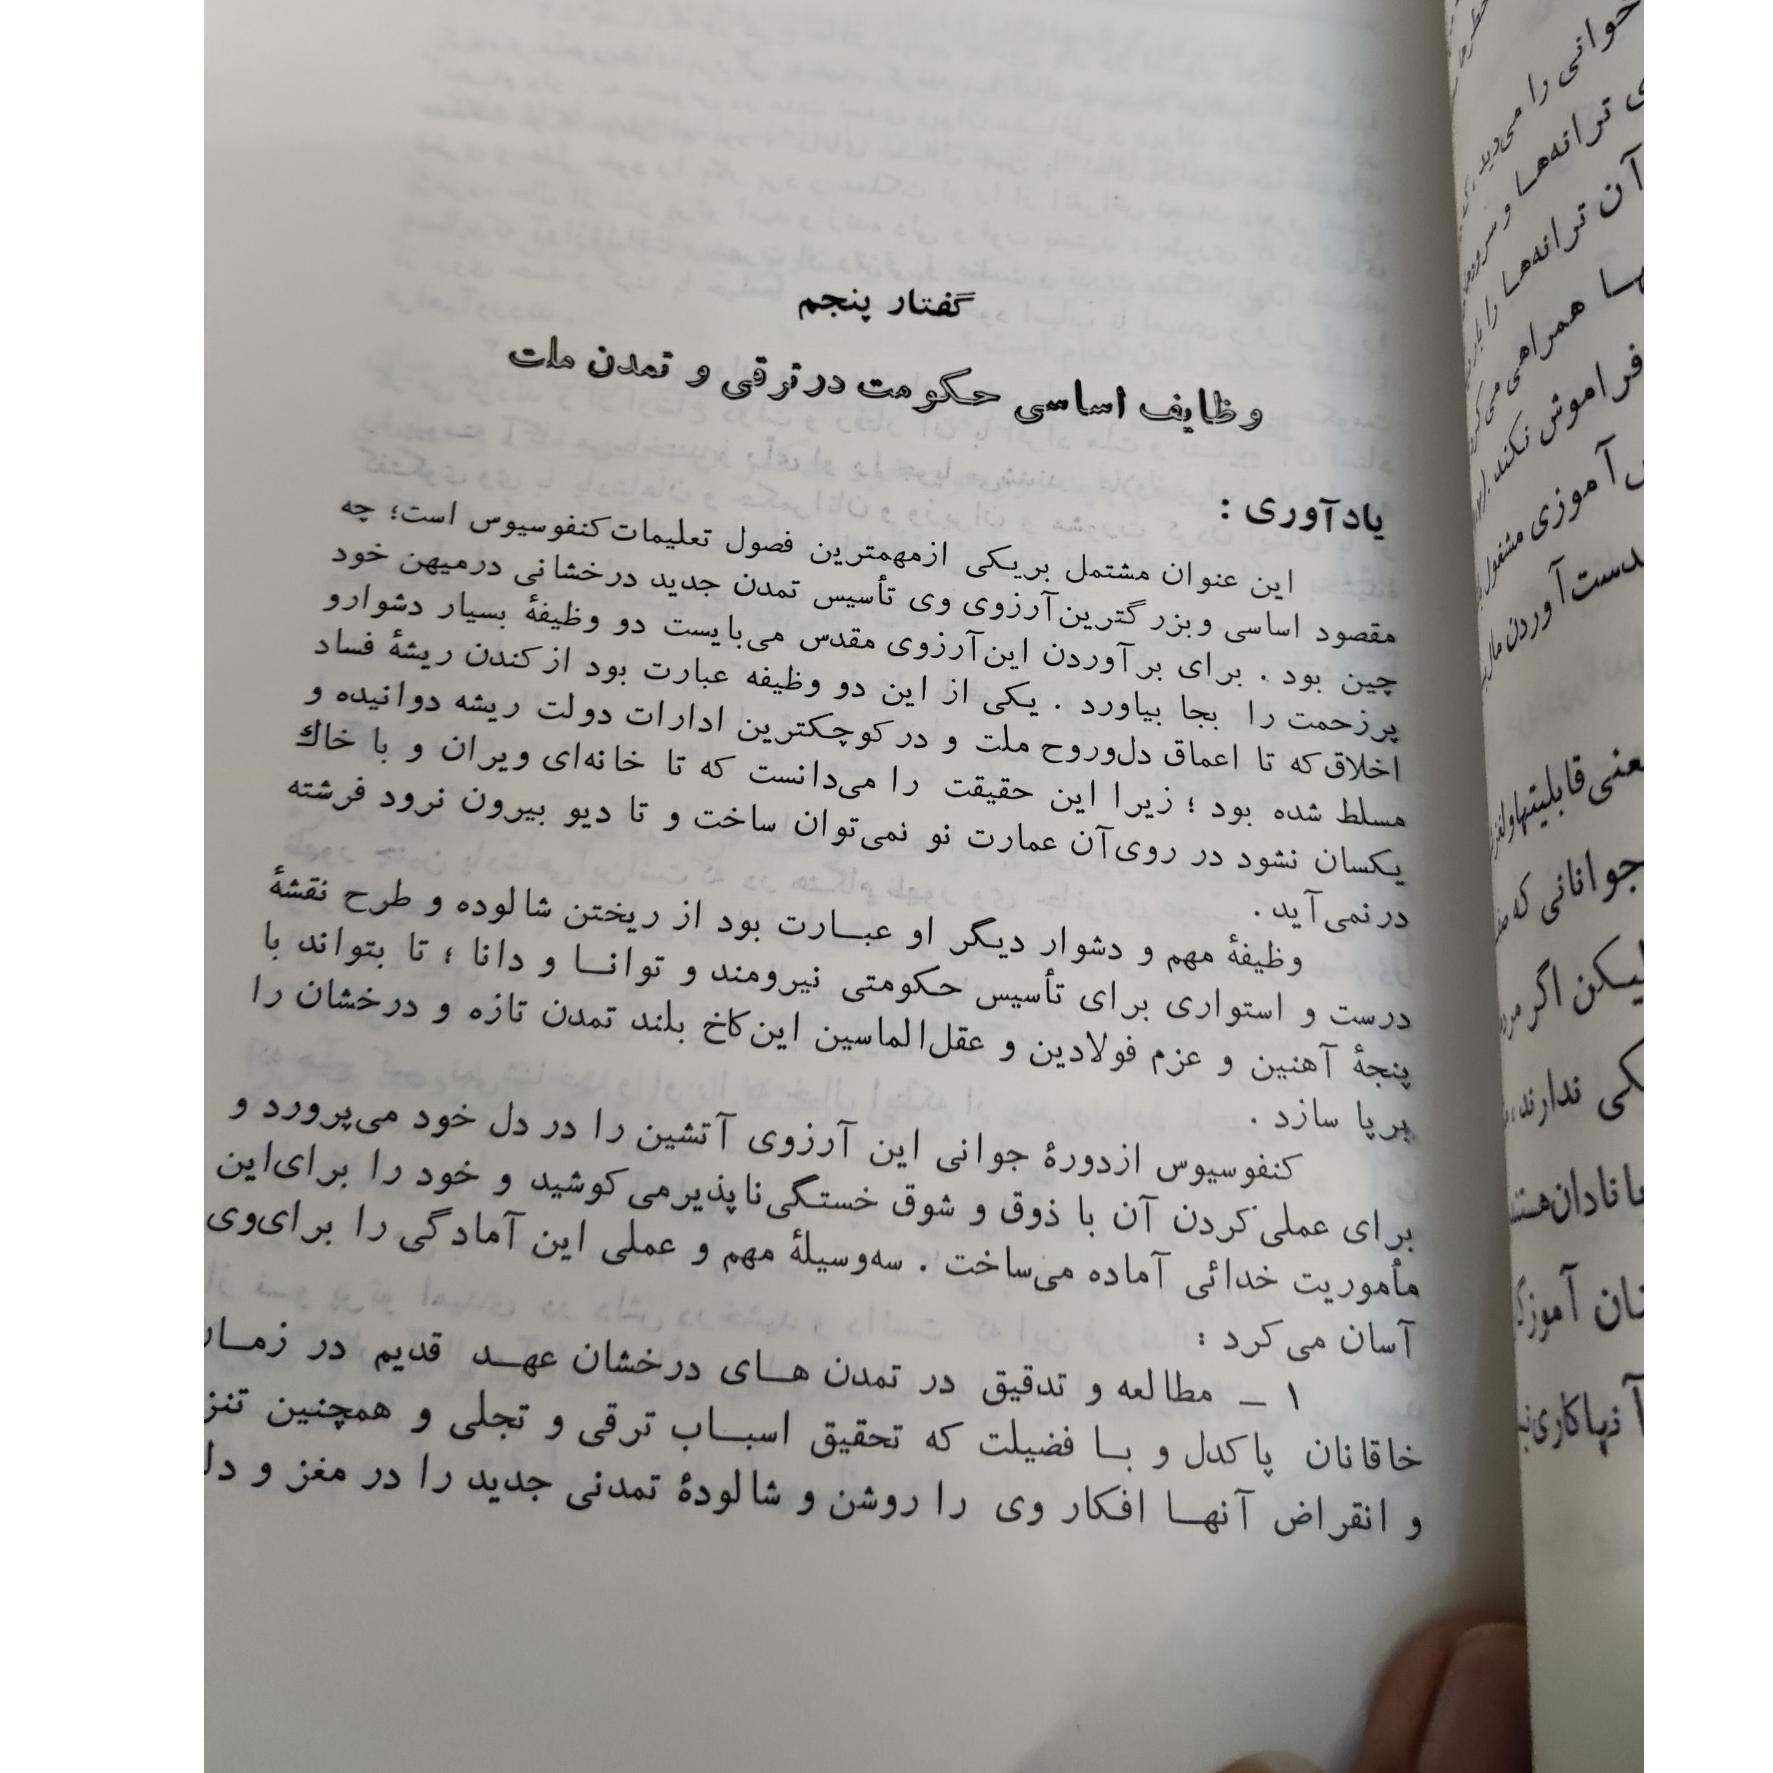 گفتار پنجم
وظایف اساسی حکومت در ترقی و تمدن ملت
یادآوری :
این عنوان مشتمل بریکی ازمهمترین فصول تعلیمات کنفوسیوس است؛ چه
مقصود اساسی و بزرگترین آرزوی وی تأسیس تمدن جدید درخشانی درمیهن خود
چین بود . برای برآوردن این آرزوی مقدس می‌بایست دو وظیفهٔ بسیار دشوارو
پرزحمت را بجا بیاورد . یکی از این دو وظیفه عبارت بود از کندن ریشهٔ فساد
اخلاق که تا اعماق دل‌وروح ملت و در کوچکترین ادارات دولت ریشه دوانیده و
مسلط شده بود ؛ زیرا این حقیقت را می‌دانست که تا خانه‌ای ویران و با خاك
یکسان نشود در روی آن عمارت نو نمی‌توان ساخت و تا دیو بیرون نرود فرشته
در نمی‌آید .
وظیفهٔ مهم و دشوار دیگر او عبارت بود از ریختن شالوده و طرح نقشهٔ
درست و استواری برای تأسیس حکومتی نیرومند و توانا و دانا ؛ تا بتواند با
پنجهٔ آهنین و عزم فولادین و عقل الماسین این کاخ بلند تمدن تازه و درخشان را
برپا سازد .
کنفوسیوس ازدورهٔ جوانی این آرزوی آتشین را در دل خود می‌پرورد و
برای عملی کردن آن با ذوق و شوق خستگی‌ناپذیر می‌کوشید و خود را برای این
مأموریت خدائی آماده می‌ساخت . سه‌وسیلهٔ مهم و عملی این آمادگی را برای‌وی
آسان می‌کرد :
۱ ـ مطالعه و تدقیق در تمدن های درخشان عهد قدیم در
خاقانان پاکدل و با فضیلت که تحقیق اسباب ترقی و تجلی و همچنین
و انقراض آنها افکار وی را روشن و شالودهٔ تمدنی جدید را در مغز و